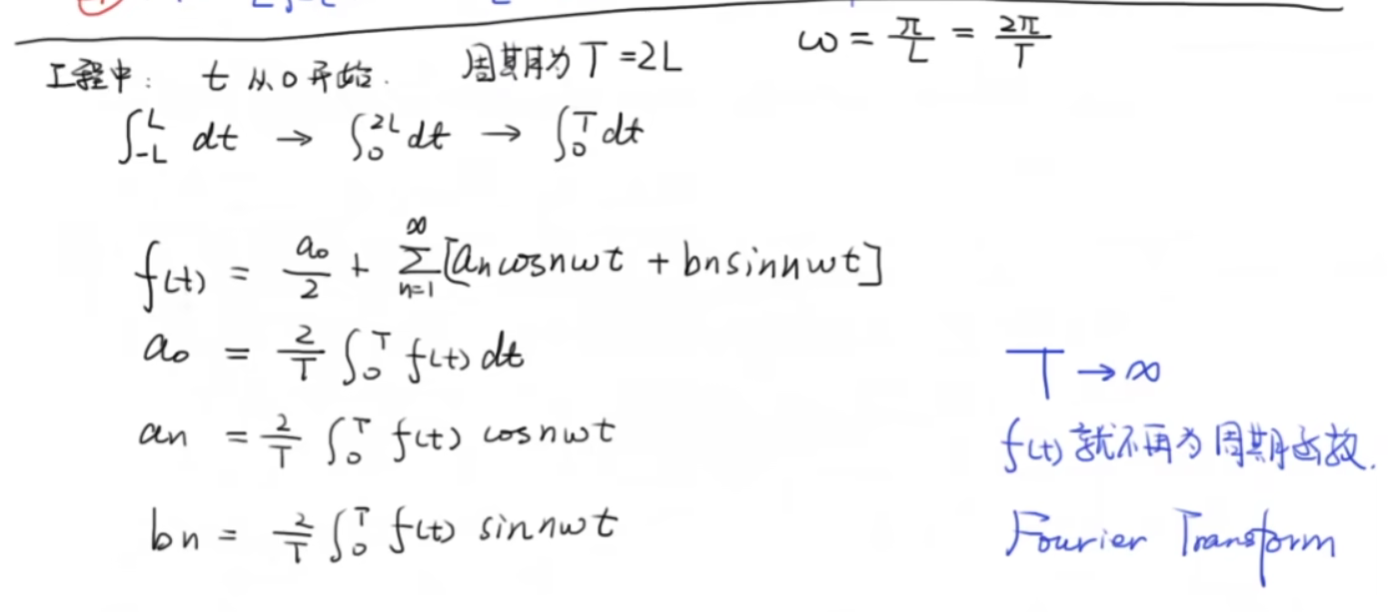 工程中: t 从 0 开始. 周期为 T = 2L ω = π/L = 2π/T
∫_{-L}^{L} dt → ∫_0^{2L} dt → ∫_0^T dt
f(t) = a₀/2 + ∑_{n=1}^{∞} [an cos nωt + bn sin nωt]
a₀ = 2/T ∫_0^T f(t) dt
an = 2/T ∫_0^T f(t) cos nωt
bn = 2/T ∫_0^T f(t) sin nωt
T → ∞
f(t) 就不再为周期函数.
Fourier Transform